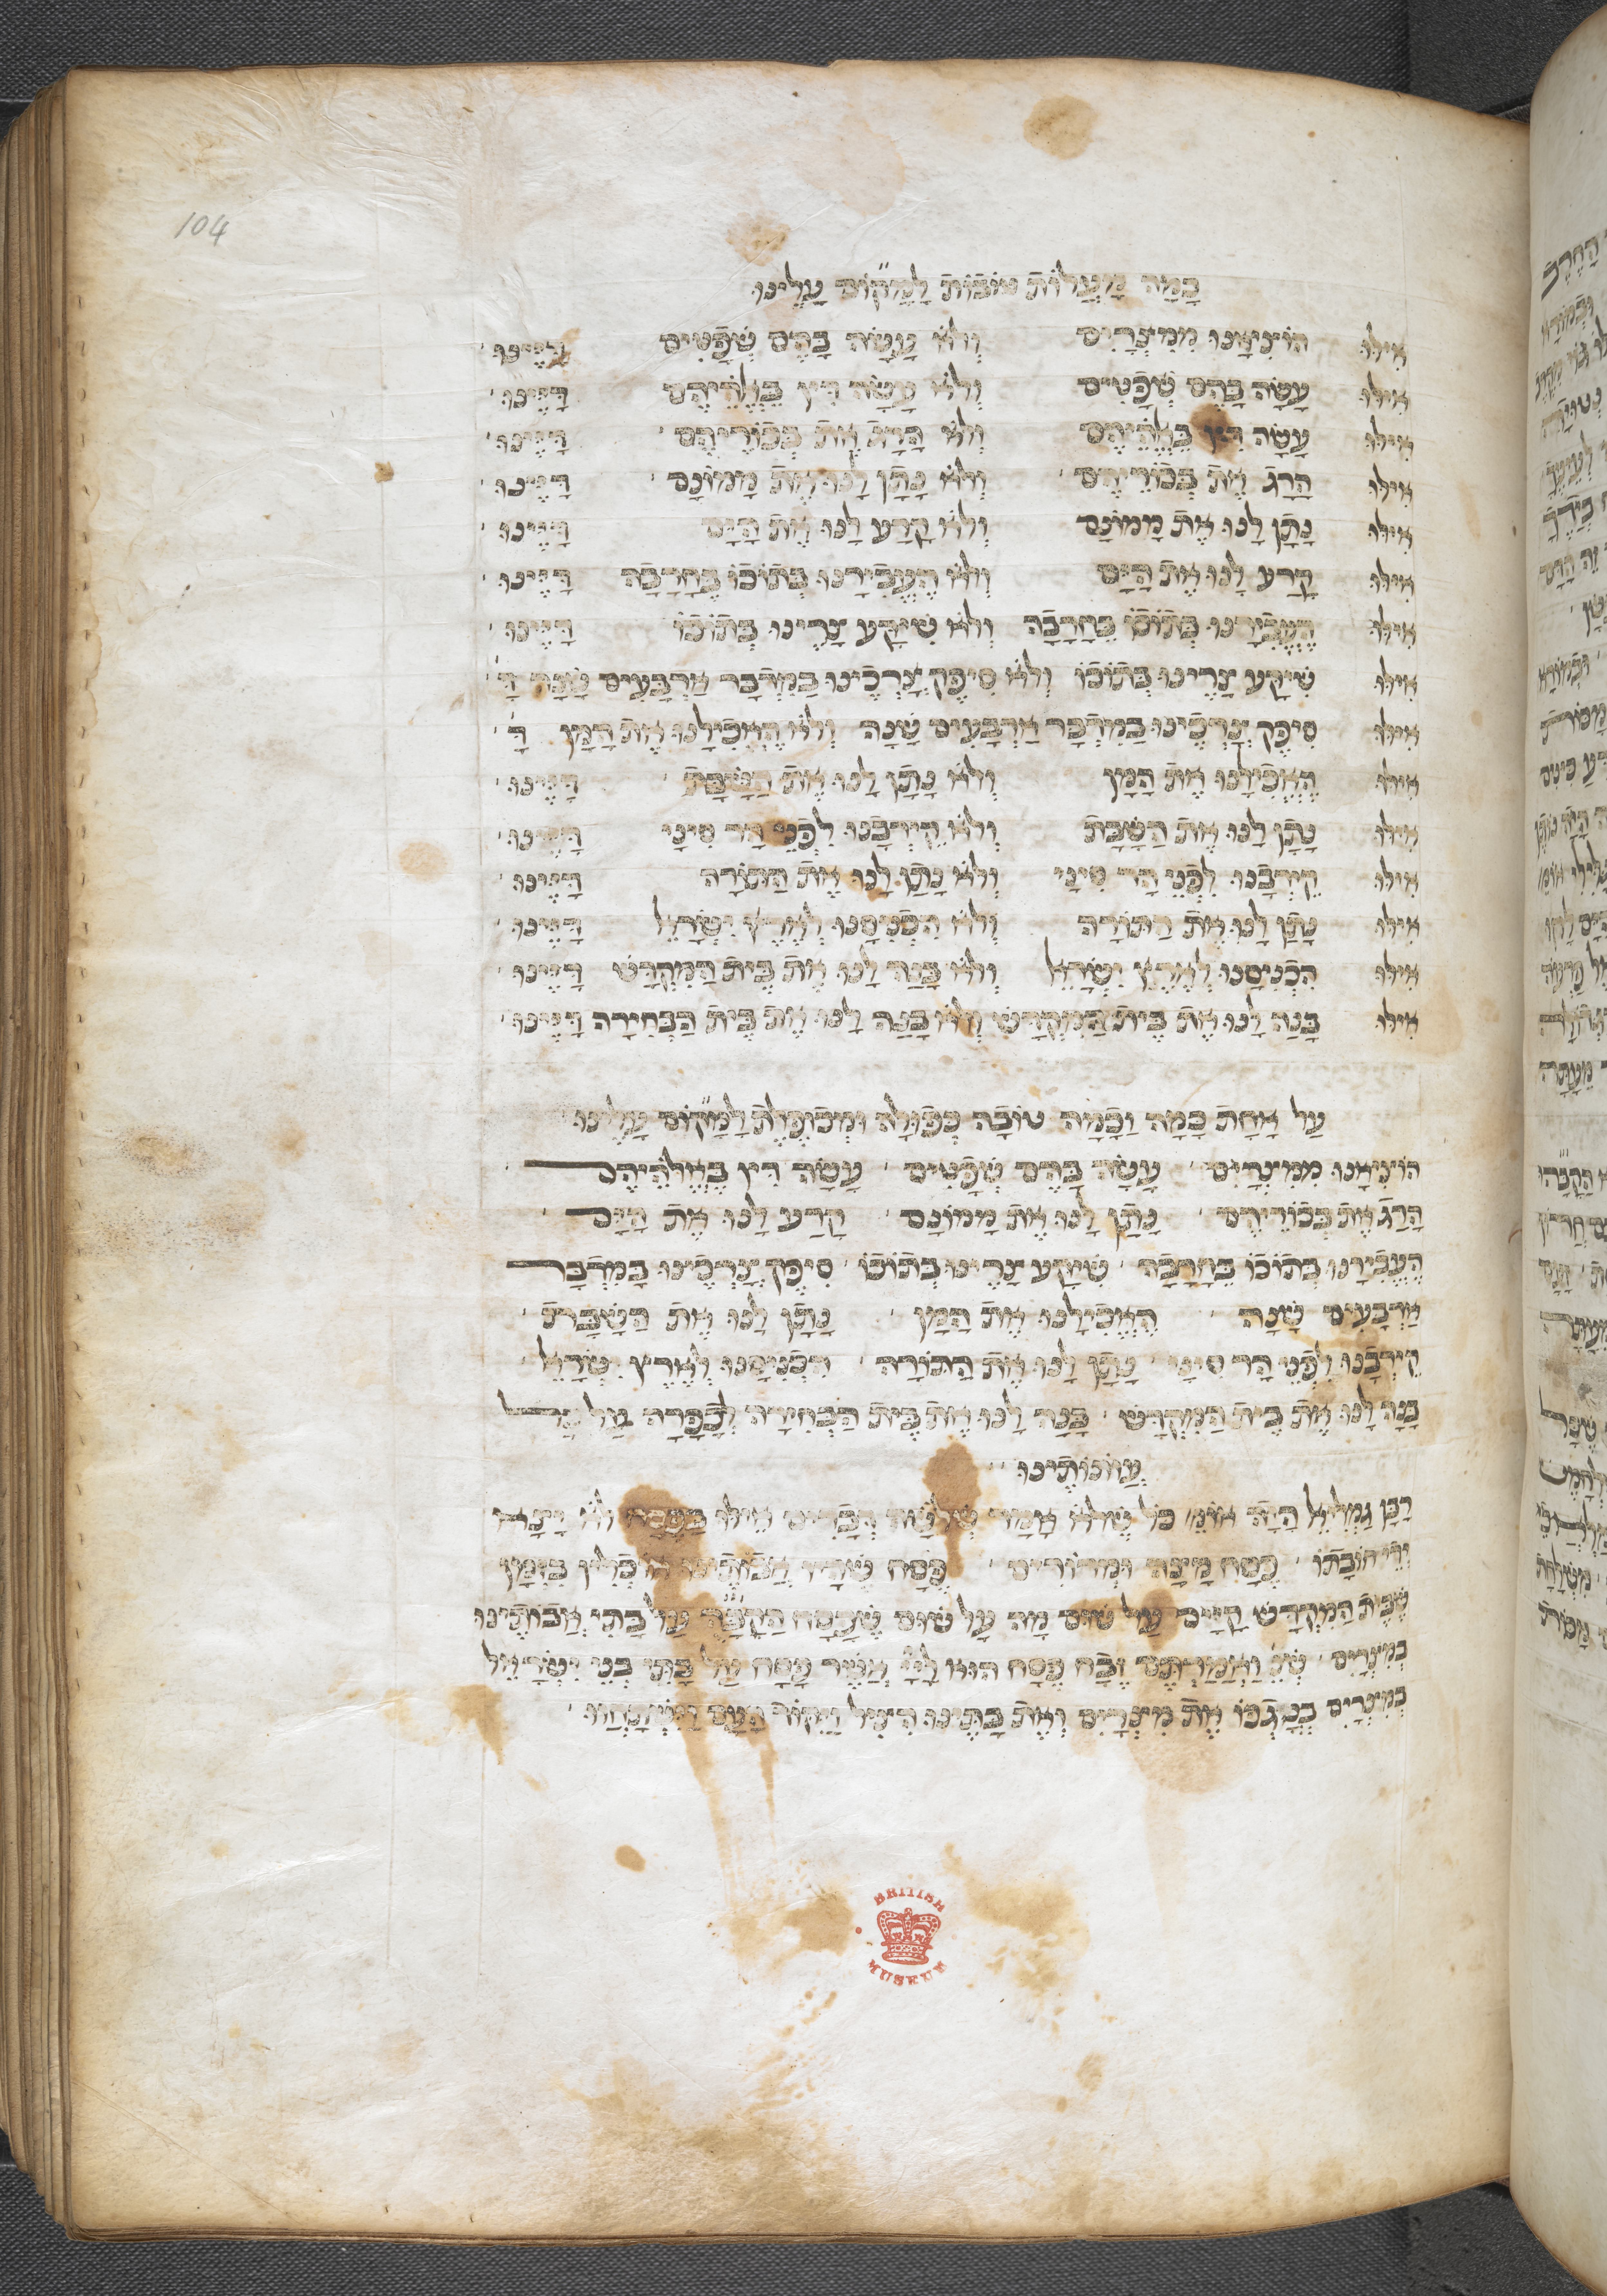 104
כַּמַה מַעֲלוֹת טוֹבוֹת לַמָּקוֹם עָלֵינוּ
אִילוּ הוֹצִיאָנוּ מִמִּצְרַיִם וְלֹא עָשָׂה בָהֶם שְׁפָטִים דַּיֵּינוּ
אִילוּ עָשָׂה בָהֶם שְׁפָטִים וְלֹא עָשָׂה דִין בֵּאלֹהֵיהֶם דַּיֵּינוּ
אִילוּ עָשָׂה דִין בֵּאלֹהֵיהֶם וְלֹא הָרַג אֶת בְּכוֹרֵיהֶם דַּיֵּינוּ
אִילוּ הָרַג אֶת בְּכוֹרֵיהֶם וְלֹא נָתַן לָנוּ אֶת מָמוֹנָם דַּיֵּינוּ
אִילוּ נָתַן לָנוּ אֶת מָמוֹנָם וְלֹא קָרַע לָנוּ אֶת הַיָּם דַּיֵּינוּ
אִילוּ קָרַע לָנוּ אֶת הַיָּם וְלֹא הֶעֱבִירָנוּ בְּתוֹכוֹ בֶּחָרָבָה דַּיֵּינוּ
אִילוּ הֶעֱבִירָנוּ בְּתוֹכוֹ בֶּחָרָבָה וְלֹא שִׁיקַע צָרֵינוּ בְּתוֹכוֹ דַּיֵּינוּ
אִילוּ שִׁיקַע צָרֵינוּ בְּתוֹכוֹ וְלֹא סִיפֵּק צָרְכֵּינוּ בַּמִּדְבָּר אַרְבָּעִים שָׁנָה דַּ'
אִילוּ סִיפֵּק צָרְכֵּינוּ בַּמִּדְבָּר אַרְבָּעִים שָׁנָה וְלֹא הֶאֱכִילָנוּ אֶת הַמָּן דַּ'
אִילוּ הֶאֱכִילָנוּ אֶת הַמָּן וְלֹא נָתַן לָנוּ אֶת הַשַּׁבָּת דַּיֵּינוּ
אִילוּ נָתַן לָנוּ אֶת הַשַּׁבָּת וְלֹא קֵירְבָנוּ לִפְנֵי הַר סִינַי דַּיֵּינוּ
אִילוּ קֵירְבָנוּ לִפְנֵי הַר סִינַי וְלֹא נָתַן לָנוּ אֶת הַתּוֹרָה דַּיֵּינוּ
אִילוּ נָתַן לָנוּ אֶת הַתּוֹרָה וְלֹא הִכְנִיסָנוּ לְאֶרֶץ יִשְׂרָאֵל דַּיֵּינוּ
אִילוּ הִכְנִיסָנוּ לְאֶרֶץ יִשְׂרָאֵל וְלֹא בָּנָה לָנוּ אֶת בֵּית הַמִּקְדָּשׁ דַּיֵּינוּ
אִילוּ בָּנָה לָנוּ אֶת בֵּית הַמִּקְדָּשׁ וְלֹא בָּנָה לָנוּ אֶת בֵּית הַבְּחִירָה דַּיֵּינוּ
עַל אַחַת כַּמָּה וְכַמָּה טוֹבָה כְּפוּלָה וּמְכוּפֶּלֶת לַמָּקוֹם עָלֵינוּ
הוֹצִיאָנוּ מִמִּצְרַיִם עָשָׂה בָהֶם שְׁפָטִים עָשָׂה דִין בֵּאלֹהֵיהֶם
הָרַג אֶת בְּכוֹרֵיהֶם נָתַן לָנוּ אֶת מָמוֹנָם קָרַע לָנוּ אֶת הַיָּם
הֶעֱבִירָנוּ בְּתוֹכוֹ בֶּחָרָבָה שִׁיקַע צָרֵינוּ בְּתוֹכוֹ סִיפֵּק צָרְכֵּינוּ בַּמִּדְבָּר
אַרְבָּעִים שָׁנָה הֶאֱכִילָנוּ אֶת הַמָּן נָתַן לָנוּ אֶת הַשַּׁבָּת
קֵירְבָנוּ לִפְנֵי הַר סִינַי נָתַן לָנוּ אֶת הַתּוֹרָה הִכְנִיסָנוּ לְאֶרֶץ יִשְׂרָאֵל
בָּנָה לָנוּ אֶת בֵּית הַמִּקְדָּשׁ בָּנָה לָנוּ אֶת בֵּית הַבְּחִירָה לְכַפָּרָה עַל כָּל
עֲוֹנוֹתֵינוּ
רַבָּן גַּמְלִיאֵל הָיָה אוֹמ' כֹּל שֶׁלֹּא אָמַר שְׁלֹשָׁה דְבָרִים אֵילוּ בַּפֶּסַח לֹא יָצָא
יְדֵי חוֹבָתוֹ פֶּסַח מַצָּה וּמְרוֹרִים פֶּסַח שֶׁהָיוּ אֲבוֹתֵינוּ אוֹכְלִין בִּזְמַן
שֶׁבֵּית הַמִּקְדָּשׁ קַיָּים עַל שׁוּם מָה עַל שׁוּם שֶׁפָּסַח הַקָּבָּ"ה עַל בָּתֵּי אֲבוֹתֵינוּ
בְּמִצְרַיִם שֶׁנֶּ' וַאֲמַרְתֶּם זֶבַח פֶּסַח הוּא לַייָ אֲשֶׁר פָּסַח עַל בָּתֵּי בְּנֵי יִשְׂרָאֵל
בְּמִצְרַיִם בְּנָגְפּוֹ אֶת מִצְרַיִם וְאֶת בָּתֵּינוּ הִצִּיל וַיִּקּוֹד הָעָם וַיִּשְׁתַּחֲווּ
BRITISH
MUSEUM